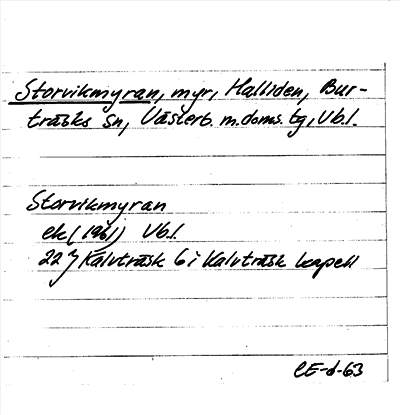 Storvikmyran, myr, Halliden, Bur-
träsks sn, Västerb. m. doms. tg, Vb.l.
Storvikmyran
ek (1961) Vb.l.
22 J Kalvträsk 6 i Kalvträsk kapell
CE-d-63